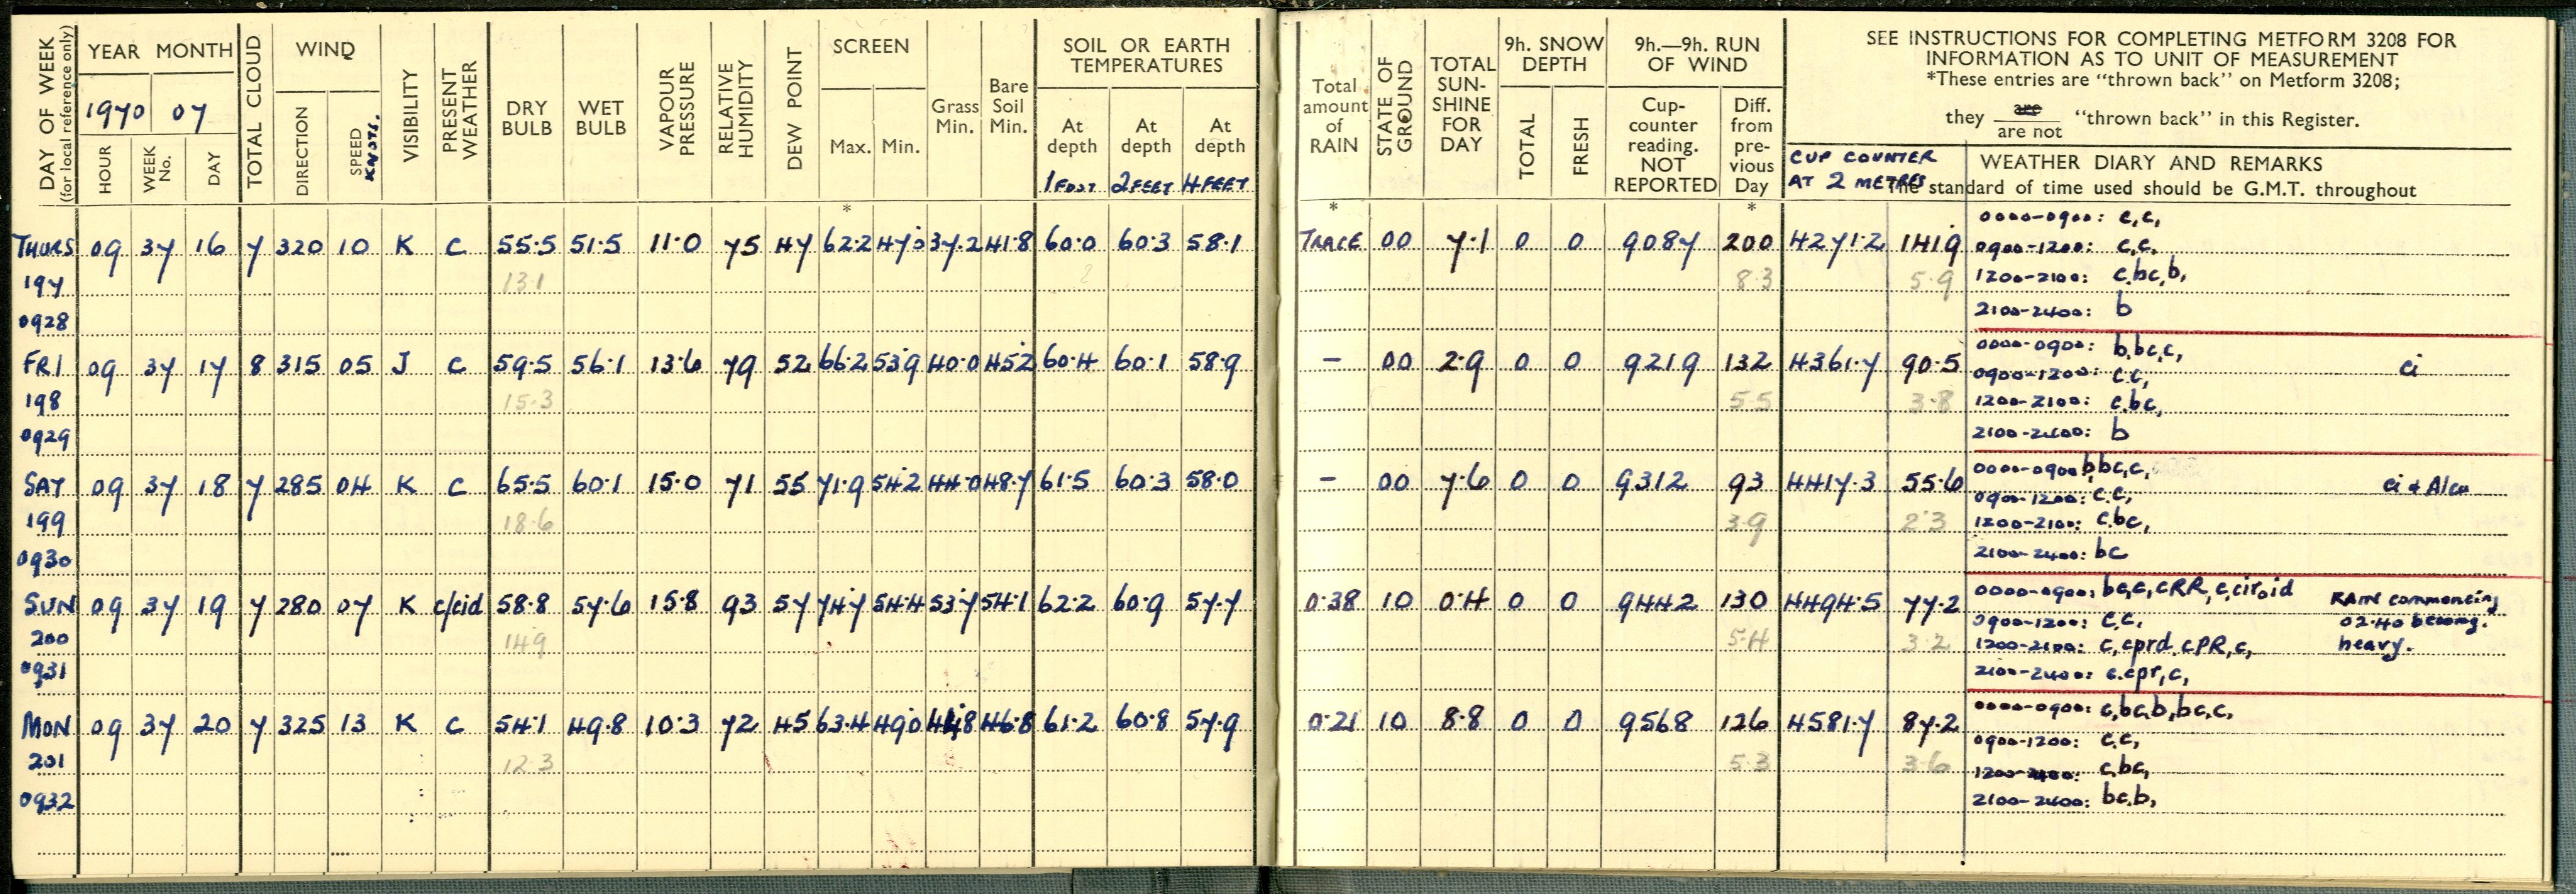 DAY OF WEEK
(for local reference only)
YEAR MONTH
1970 07
HOUR
WEEK No.
DAY
TOTAL CLOUD
WIND
DIRECTION
SPEED KNOTS.
VISIBILITY
PRESENT WEATHER
DRY BULB
WET BULB
VAPOUR PRESSURE
RELATIVE HUMIDITY
DEW POINT
SCREEN
Max. Min.
Grass Min.
Bare Soil Min.
SOIL OR EARTH TEMPERATURES
At depth 1 FOOT
At depth 2 FEET
At depth 4 FEET
Total amount of RAIN
STATE OF GROUND
TOTAL SUN-SHINE FOR DAY
9h. SNOW DEPTH
TOTAL
FRESH
9h.—9h. RUN OF WIND
Cup-counter reading. NOT REPORTED
Diff. from pre-vious Day
SEE INSTRUCTIONS FOR COMPLETING METFORM 3208 FOR
INFORMATION AS TO UNIT OF MEASUREMENT
*These entries are "thrown back" on Metform 3208;
they are / are not "thrown back" in this Register.
CUP COUNTER
AT 2 METRES
WEATHER DIARY AND REMARKS
The standard of time used should be G.M.T. throughout
* * *
THURS 09 37 16 7 320 10 K C 55.5 51.5 11.0 75 47 62.2 47.0 37.2 41.8 60.0 60.3 58.1 TRACE 00 7.1 0 0 9087 200 4271.2 141.9
0000-0900: c,c,
0900-1200: c,c,
197 13.1 8.3 5.9 1200-2100: c,bc,b,
0928 2100-2400: b
FRI 09 37 17 8 315 05 J C 59.5 56.1 13.6 79 52 66.2 53.9 40.0 45.2 60.4 60.1 58.9 – 00 2.9 0 0 9219 132 4361.7 90.5
0000-0900: b,bc,c, ci
0900-1200: c.c,
198 15.3 5.5 3.8 1200-2100: c,bc,
0929 2100-2400: b
SAT 09 37 18 7 285 04 K C 65.5 60.1 15.0 71 55 71.9 54.2 44.0 48.7 61.5 60.3 58.0 – 00 7.6 0 0 9312 93 4417.3 55.6
0000-0900 b,bc,c, ci & Alcu
0900-1200: c.c,
199 18.6 3.9 2.3 1200-2100: c.bc,
0930 2100-2400: bc
SUN 09 37 19 7 280 07 K c/cid 58.8 57.6 15.8 93 57 74.7 54.4 53.7 54.1 62.2 60.9 57.7 0.38 10 0.4 0 0 9442 130 4494.5 77.2
0000-0900: bc,c,cRR,c,ciroid RAIN commencing
0900-1200: c.c, 02.40 becomg.
200 14.9 5.4 3.2 1200-2100: c,cprd,cPR,c, heavy.
0931 2100-2400: c.cpr,c,
MON 09 37 20 7 325 13 K C 54.1 49.8 10.3 72 45 63.4 49.0 44.8 46.8 61.2 60.8 57.9 0.21 10 8.8 0 0 9568 126 4581.7 87.2
0000-0900: c,bc,b,bc,c,
0900-1200: c.c,
201 12.3 5.3 3.6 1200-2400: c,bc,
0932 2100-2400: bc,b,